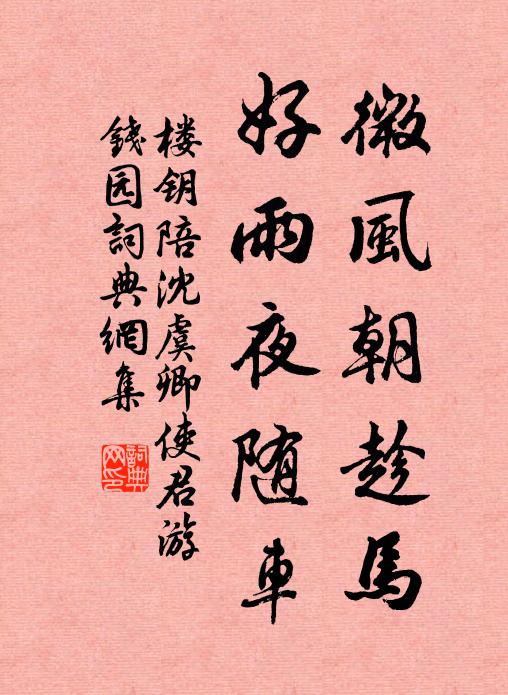 微風朝趁馬
好雨夜随車
楼钥陪沈虞卿使君游
錢园詞典網集
詞典网印